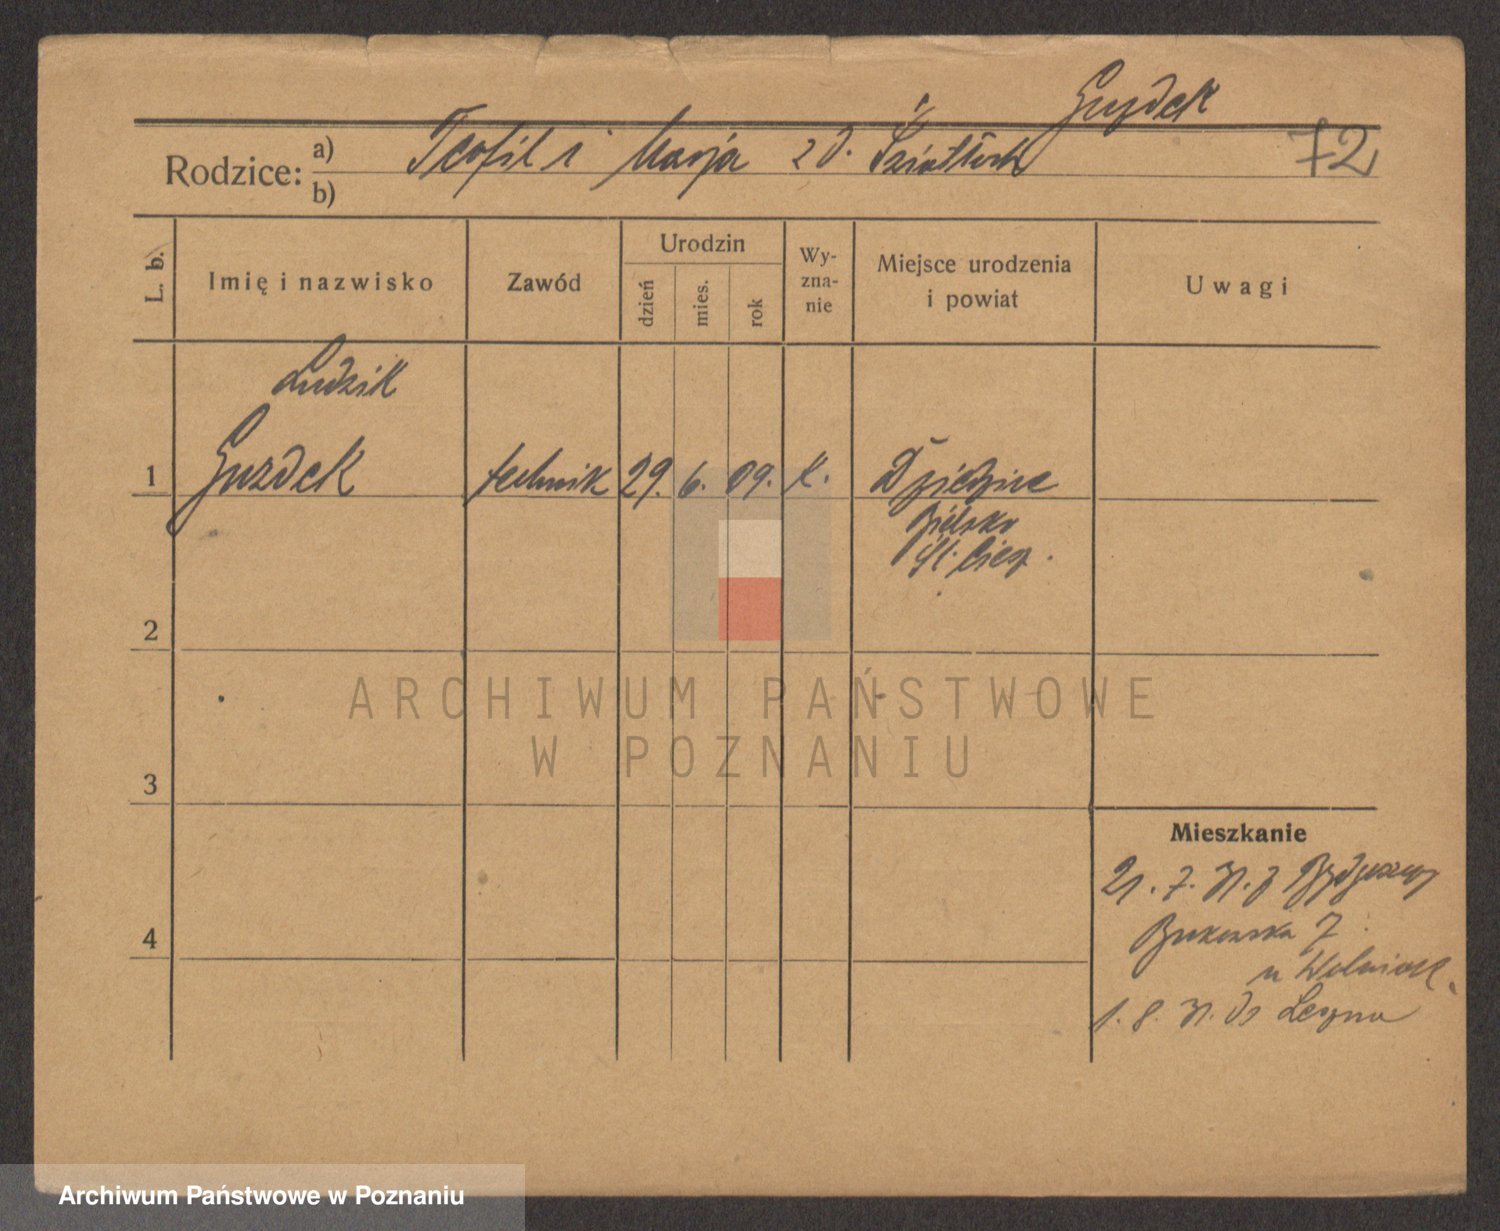 Guzdek
Rodzice: a) b) Teofil i Marja z d. 72
L. b. Imię i nazwisko Zawód Urodzin dzień mies. rok Wy-zna-nie Miejsce urodzenia i powiat Uwagi
Ludzik
1 Guzdek technik 29. 6. 09. k. Dziedzice
Bielsko
Śl. Ciesz.
2
ARCHIWUM PAŃSTWOWE
W POZNANIU
3
Mieszkanie
21. 7. 31. z Bydgoszczy
4 Bukowska 7
u
1. 8. 31. do Leszna
Archiwum Państwowe w Poznaniu